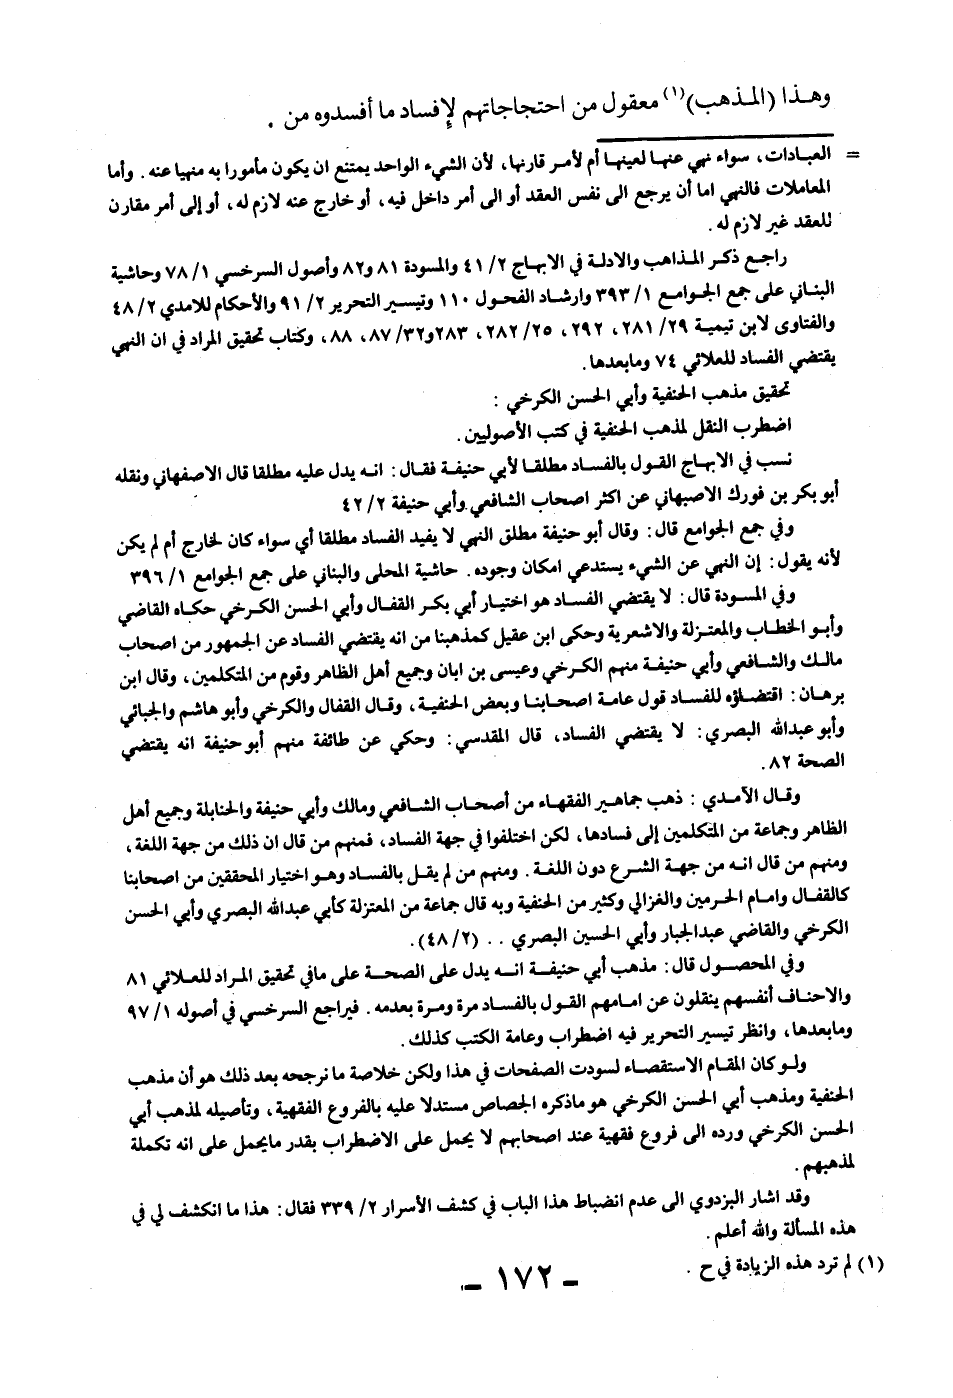 وهذا (المذهب)(١) معقول من احتجاجاتهم لإفساد ما أفسدوه من .
= العبادات، سواء نهي عنها لعينها أم لأمر قارنها، لأن الشيء الواحد يمتنع ان يكون مأمورا به منهيا عنه. وأما
المعاملات فالنهي اما أن يرجع الى نفس العقد أو الى أمر داخل فيه، أو خارج عنه لازم له، أو إلى أمر مقارن
للعقد غير لازم له.
راجع ذكر المذاهب والادلة في الابهاج ٢/ ٤١ والمسودة ٨١ و٨٢ وأصول السرخسي ١/ ٧٨ وحاشية
البناني على جمع الجوامع ١/ ٣٩٣ وارشاد الفحول ١١٠ وتيسير التحرير ٢/ ٩١ والأحكام للامدي ٢/ ٤٨
والفتاوى لابن تيمية ٢٩/ ٢٨١، ٢٩٢، ٢٥/ ٢٨٢، ٢٨٣و٣٢/ ٨٧، ٨٨، وكتاب تحقيق المراد في ان النهي
يقتضي الفساد للعلائي ٧٤ ومابعدها.
تحقيق مذهب الحنفية وأبي الحسن الكرخي :
اضطرب النقل لمذهب الحنفية في كتب الأصوليين.
نسب في الابهاج القول بالفساد مطلقا لأبي حنيفة فقال: انه يدل عليه مطلقا قال الاصفهاني ونقله
أبو بكر بن فورك الاصبهاني عن اكثر اصحاب الشافعي وأبي حنيفة ٢/ ٤٢
وفي جمع الجوامع قال: وقال أبو حنيفة مطلق النهي لا يفيد الفساد مطلقا أي سواء كان لخارج أم لم يكن
لأنه يقول: إن النهي عن الشيء يستدعي امكان وجوده. حاشية المحلى والبناني على جمع الجوامع ١/ ٣٩٦
وفي المسودة قال: لا يقتضي الفساد هو اختيار أبي بكر القفال وأبي الحسن الكرخي حكاه القاضي
وأبو الخطاب والمعتزلة والاشعرية وحكى ابن عقيل كمذهبنا من انه يقتضي الفساد عن الجمهور من اصحاب
مالك والشافعي وأبي حنيفة منهم الكرخي وعيسى بن ابان وجميع أهل الظاهر وقوم من المتكلمين، وقال ابن
برهان: اقتضاؤه للفساد قول عامة اصحابنا وبعض الحنفية، وقال القفال والكرخي وأبو هاشم والجبائي
وأبو عبدالله البصري: لا يقتضي الفساد، قال المقدسي: وحكي عن طائفة منهم أبو حنيفة انه يقتضي
الصحة ٨٢.
وقال الآمدي : ذهب جماهير الفقهاء من أصحاب الشافعي ومالك وأبي حنيفة والحنابلة وجميع أهل
الظاهر وجماعة من المتكلمين إلى فسادها، لكن اختلفوا في جهة الفساد، فمنهم من قال ان ذلك من جهة اللغة،
ومنهم من قال انه من جهة الشرع دون اللغة. ومنهم من لم يقل بالفساد وهو اختيار المحققين من اصحابنا
كالقفال وامام الحرمين والغزالي وكثير من الحنفية وبه قال جماعة من المعتزلة كأبي عبدالله البصري وأبي الحسن
الكرخي والقاضي عبدالجبار وأبي الحسين البصري .. (٢/ ٤٨).
وفي المحصول قال: مذهب أبي حنيفة انه يدل على الصحة على مافي تحقيق المراد للعلائي ٨١
والاحناف أنفسهم ينقلون عن امامهم القول بالفساد مرة ومرة بعدمه. فيراجع السرخسي في أصوله ١/ ٩٧
ومابعدها، وانظر تيسير التحرير فيه اضطراب وعامة الكتب كذلك.
ولو كان المقام الاستقصاء لسودت الصفحات في هذا ولكن خلاصة ما نرجحه بعد ذلك هو أن مذهب
الحنفية ومذهب أبي الحسن الكرخي هو ماذكره الجصاص مستدلا عليه بالفروع الفقهية، وتأصيله لمذهب أبي
الحسن الكرخي ورده الى فروع فقهية عند اصحابهم لا يحمل على الاضطراب بقدر مايحمل على انه تكملة
لمذهبهم.
وقد اشار البزدوي الى عدم انضباط هذا الباب في كشف الأسرار ٢/ ٣٣٩ فقال: هذا ما انكشف لي في
هذه المسألة والله أعلم.
(١) لم ترد هذه الزيادة في ح .
- ١٧٢ -